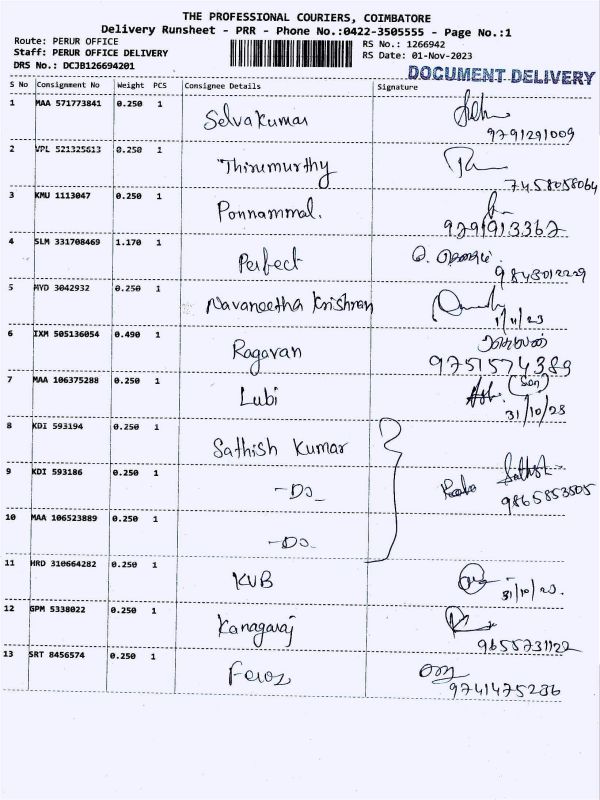 THE PROFESSIONAL COURIERS, COIMBATORE
Delivery Runsheet - PRR - Phone No.:0422-3505555 - Page No.:1
Route: PERUR OFFICE RS No.: 1266942
Staff: PERUR OFFICE DELIVERY RS Date: 01-Nov-2023
DRS No.: DCJB126694201 DOCUMENT DELIVERY
S No Consignment No Weight PCS Consignee Details Signature
1 MAA 571773841 0.250 1 Selvakumar
9791291009
2 VPL 521325613 0.250 1 Thirumurthy
7458058064
3 KMU 1113047 0.250 1 Ponnammal.
9791913362
4 SLM 331708469 1.170 1 Perfect
9843012229
5 MYD 3042932 0.250 1 Navaneetha Krishnan
1/11/23
6 IXM 505136054 0.490 1 Ragavan
9751574389
7 MAA 106375288 0.250 1 Lubi (Son)
31/10/23
8 KDI 593194 0.250 1 Sathish Kumar
9 KDI 593186 0.250 1 -Do- Sathish
9865853505
10 MAA 106523889 0.250 1 -Do-
11 HRD 310664282 0.250 1 KVB
31/10/23.
12 GPM 5338022 0.250 1 Kanagaraj
9655731122
13 SRT 8456574 0.250 1 Feroz
9741475236